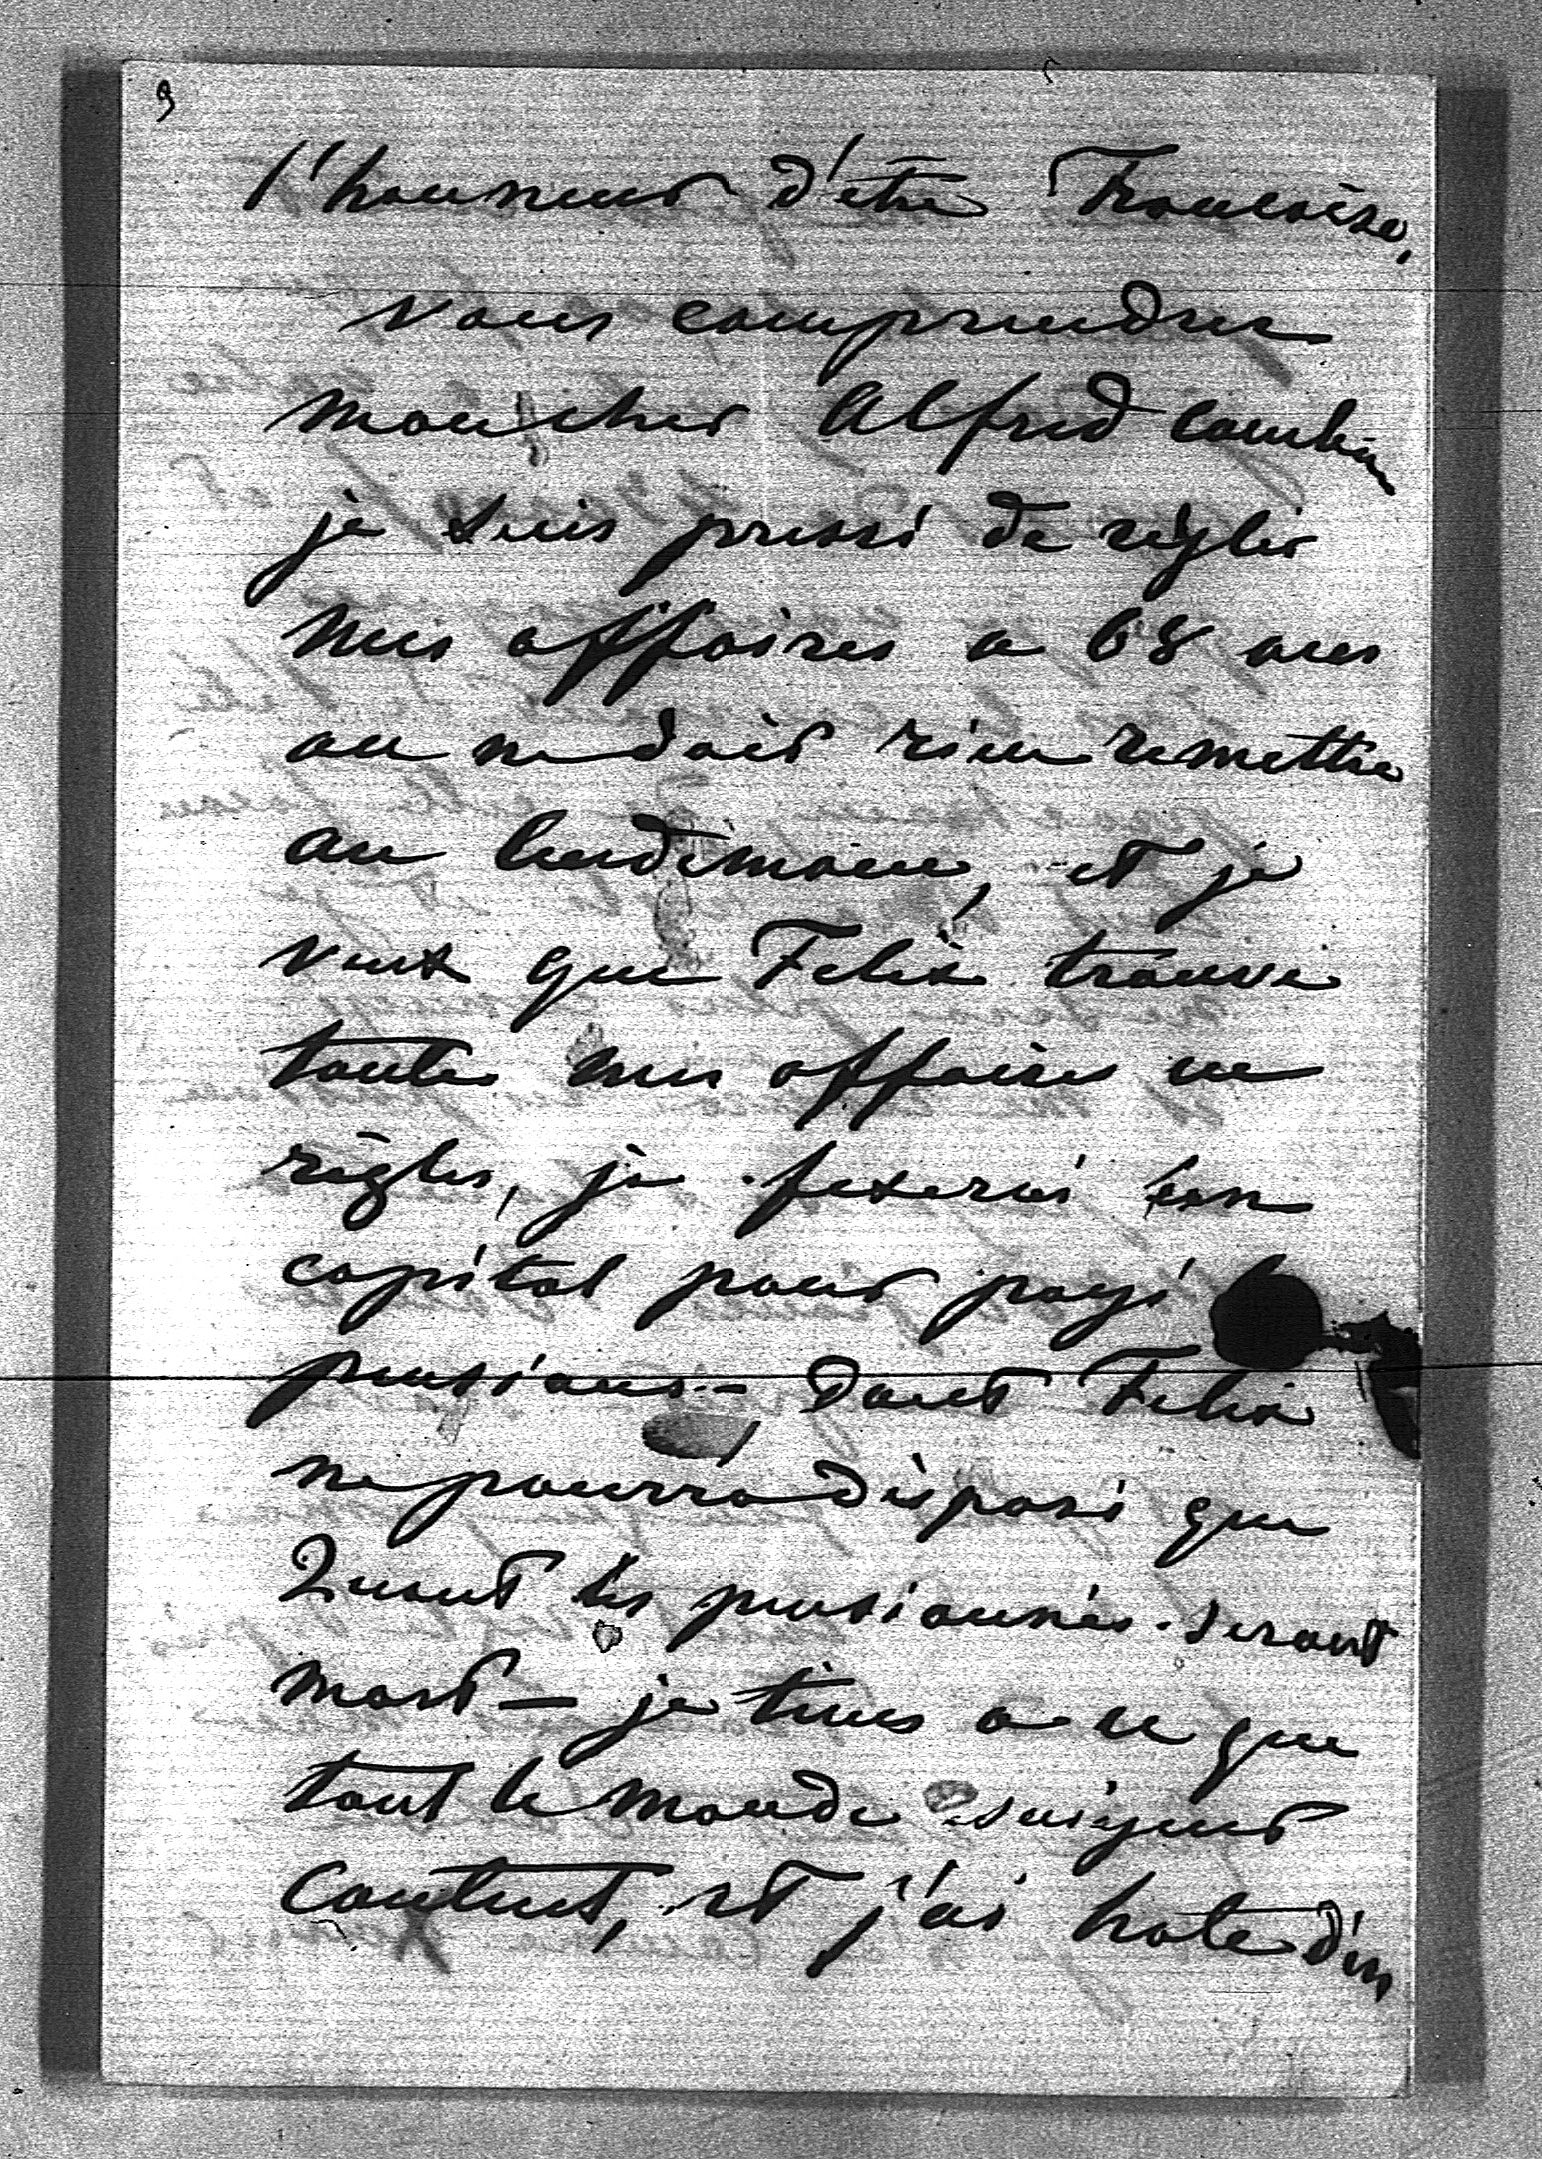 9
l'honneur d'etre Francaise,
vous comprendrez
mon cher Alfred combien
je suis pressé de règler
mes affaires a 68 ans
on ne doit rien remettre
au lendemain, et je
veux que Felix trouve
toutes mes affaires en
règles, je fixerai
capital pour payé
pensions - dont Felix
ne pourra disposé que
Quant les pensionnés seront
mort - je tiens a ce que
tout le monde soigent
content, et j'ai hate d'en